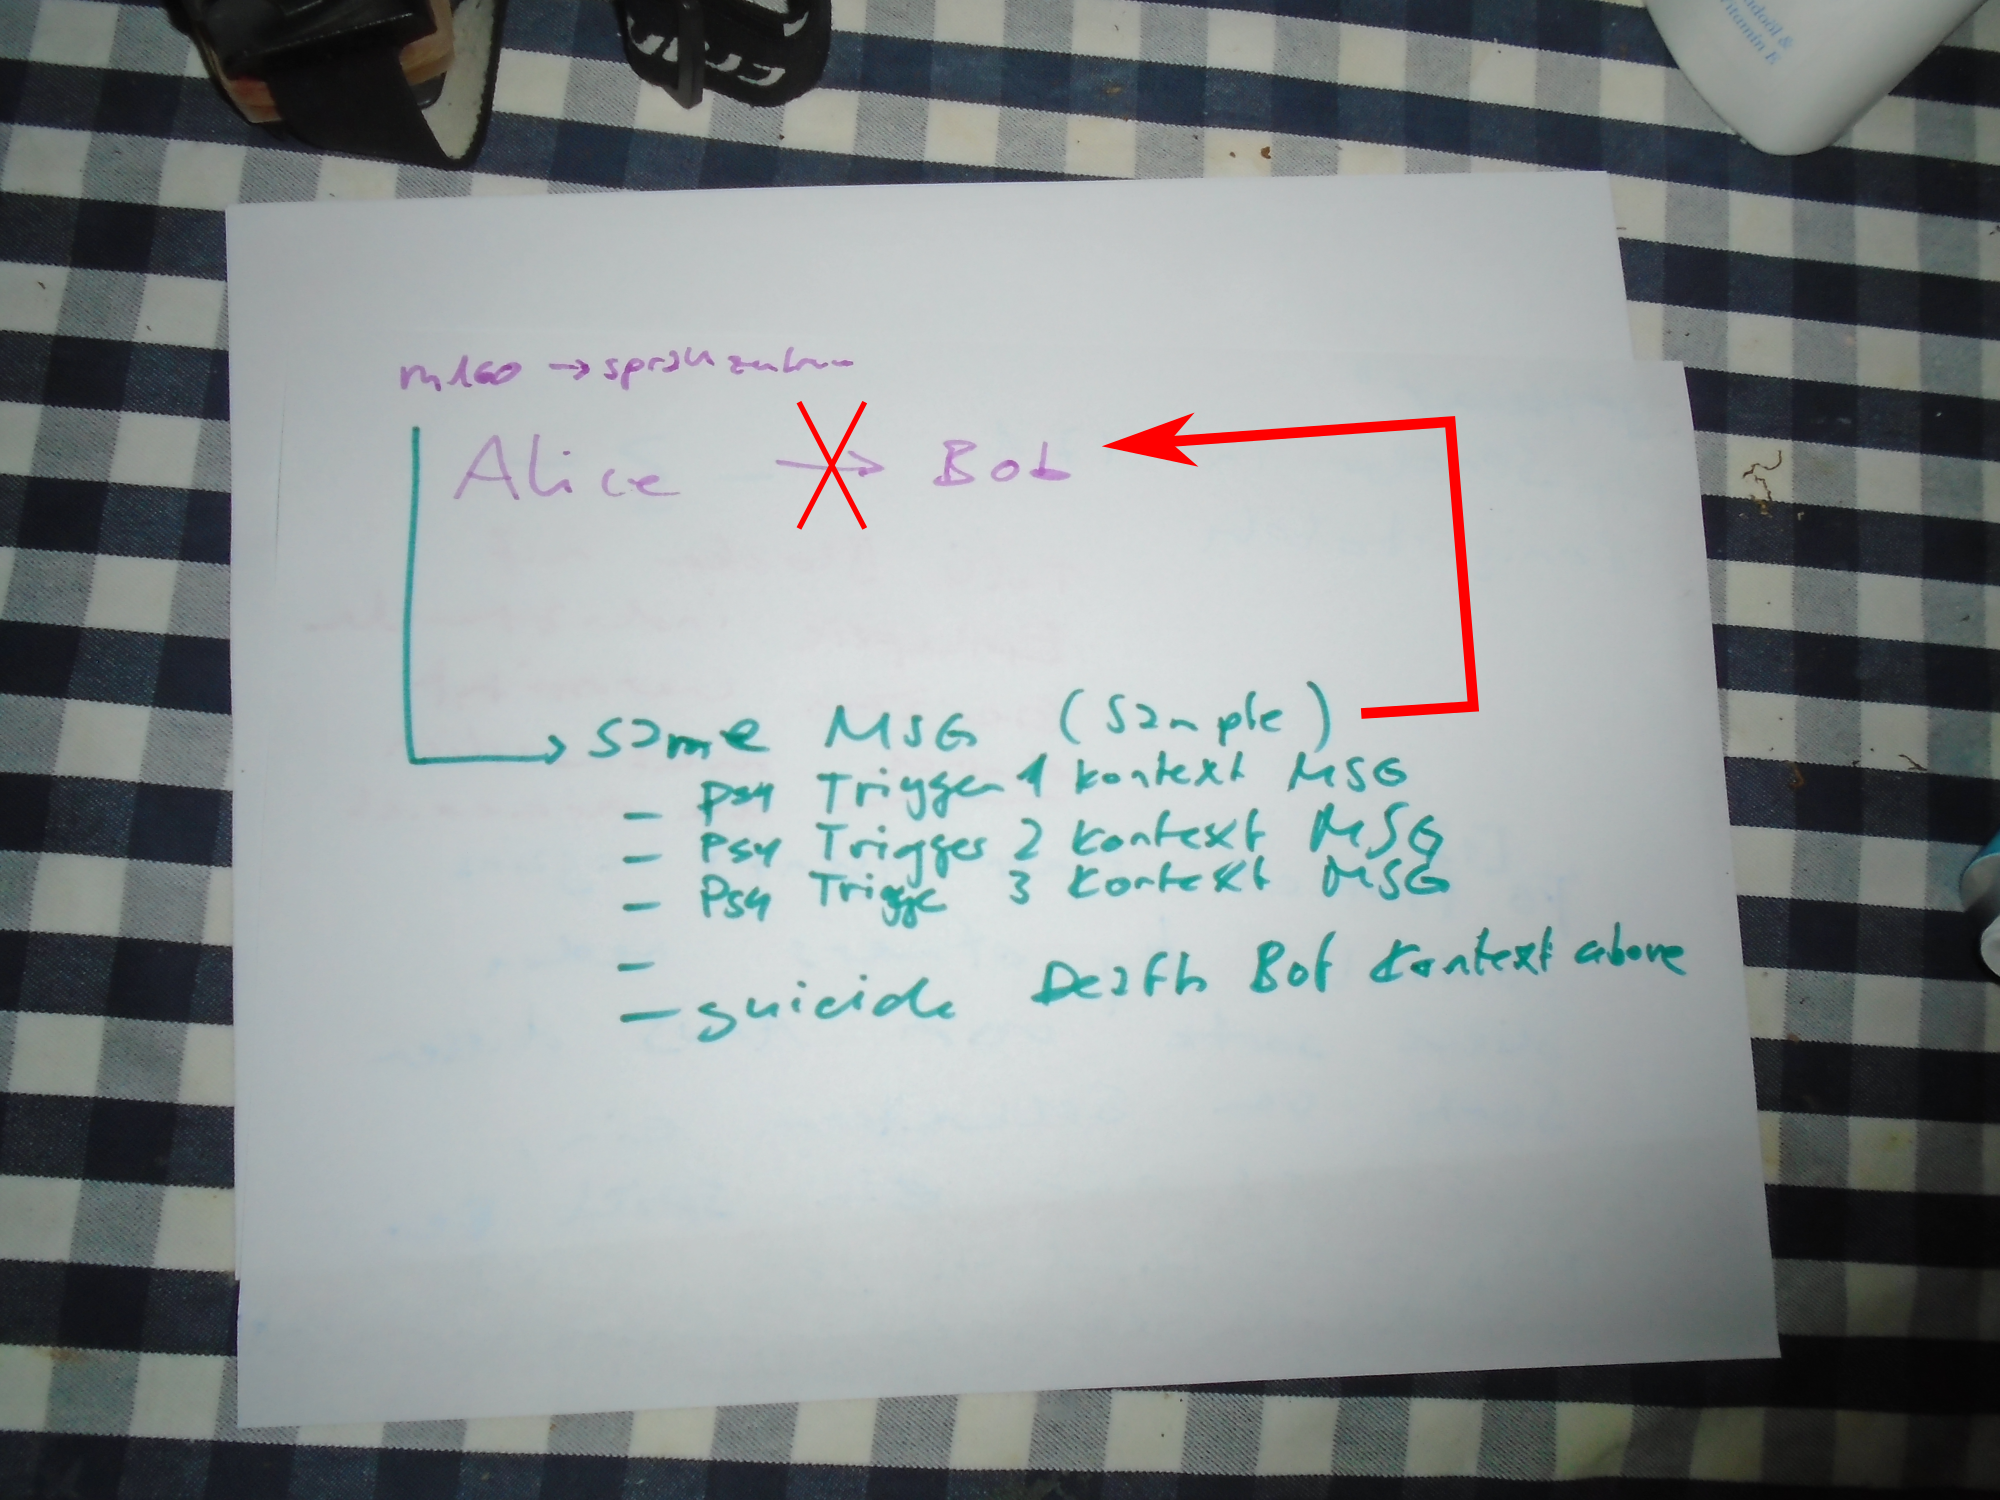 ndoöl &
Vitamin E
m160 → sprach
Alice → Bob
same MSG (Sample)
– psy Trigger 1 kontext MSG
– Psy Trigger 2 kontext MSG
– Psy Trigge 3 kontext MSG
–
– suicide Death Bot Kontext above